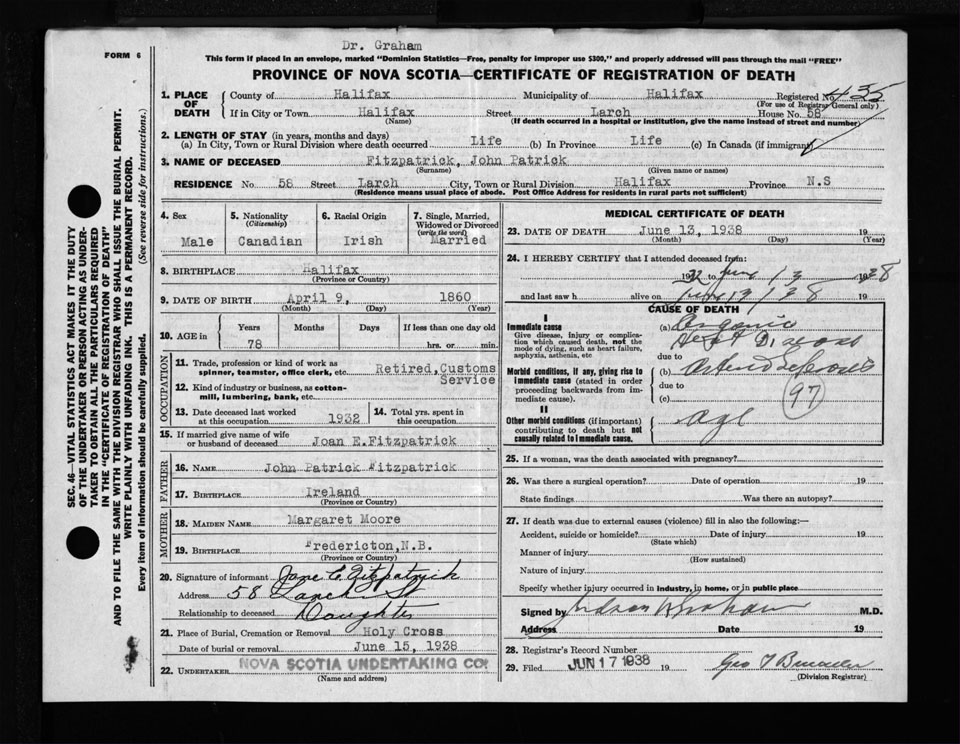 Dr. Graham
FORM 6
This form if placed in an envelope, marked "Dominion Statistics—Free, penalty for improper use $300," and properly addressed will pass through the mail "FREE"
PROVINCE OF NOVA SCOTIA—CERTIFICATE OF REGISTRATION OF DEATH
1. PLACE OF DEATH County of Halifax Municipality of Halifax Registered No. 435
(For use of Registrar General only)
If in City or Town Halifax Street Larch House No. 58
(Name) (If death occurred in a hospital or institution, give the name instead of street and number)
2. LENGTH OF STAY (in years, months and days)
(a) In City, Town or Rural Division where death occurred Life (b) In Province Life (c) In Canada (if immigrant)
3. NAME OF DECEASED Fitzpatrick, John Patrick
(Surname) (Given name or names)
RESIDENCE No. 58 Street Larch City, Town or Rural Division Halifax Province N.S
(Residence means usual place of abode. Post Office Address for residents in rural parts not sufficient)
4. Sex Male
5. Nationality (Citizenship) Canadian
6. Racial Origin Irish
7. Single, Married, Widowed or Divorced (write the word) Married
8. BIRTHPLACE Halifax
(Province or Country)
9. DATE OF BIRTH April 9, 1860
(Month) (Day) (Year)
10. AGE in Years Months Days If less than one day
78 hrs. or min.
OCCUPATION
11. Trade, profession or kind of work as spinner, teamster, office clerk, etc. Retired, Customs Service
12. Kind of industry or business, as cotton-mill, lumbering, bank, etc.
13. Date deceased last worked at this occupation. 1932
14. Total yrs. spent in this occupation.
15. If married give name of wife or husband of deceased Joan E. Fitzpatrick
FATHER
16. NAME John Patrick Fitzpatrick
17. BIRTHPLACE Ireland
(Province or Country)
MOTHER
18. MAIDEN NAME Margaret Moore
19. BIRTHPLACE Fredericton, N.B.
(Province or Country)
20. Signature of informant Jane E Fitzpatrick
Address 58 Larch St
Relationship to deceased Daughter
21. Place of Burial, Cremation or Removal Holy Cross
Date of burial or removal June 15, 1938
22. UNDERTAKER NOVA SCOTIA UNDERTAKING CO.
(Name and address)
MEDICAL CERTIFICATE OF DEATH
23. DATE OF DEATH June 13, 1938 19
(Month) (Day) (Year)
24. I HEREBY CERTIFY that I attended deceased from:
1932 to June 13 1938
and last saw h alive on June 13/38 19
CAUSE OF DEATH
I
Immediate cause (a) Organic Heart Disease
Give disease, injury or complication which caused death, not the mode of dying, such as heart failure, asphyxia, asthenia, etc
due to
Morbid conditions, if any, giving rise to immediate cause (stated in order proceeding backwards from immediate cause). (b) Arterio Sclerosis
due to
(c)
97
II
Other morbid conditions (if important) contributing to death but not causally related to immediate cause. Age
25. If a woman, was the death associated with pregnancy?
26. Was there a surgical operation? Date of operation 19
State findings Was there an autopsy?
27. If death was due to external causes (violence) fill in also the following:—
Accident, suicide or homicide? Date of injury 19
(State which)
Manner of injury
(How sustained)
Nature of injury
Specify whether injury occurred in industry, in home, or in public place
Signed by Graham M.D.
Address Date 19
28. Registrar's Record Number
29. Filed JUN 17 1938 19 Geo T
(Division Registrar)
SEC. 46—VITAL STATISTICS ACT MAKES IT THE DUTY
OF THE UNDERTAKER OR PERSON ACTING AS UNDER-
TAKER TO OBTAIN ALL THE PARTICULARS REQUIRED
IN THE "CERTIFICATE OF REGISTRATION OF DEATH"
AND TO FILE THE SAME WITH THE DIVISION REGISTRAR WHO SHALL ISSUE THE BURIAL PERMIT.
WRITE PLAINLY WITH UNFADING INK. THIS IS A PERMANENT RECORD.
Every item of information should be carefully supplied. (See reverse side for instructions.)